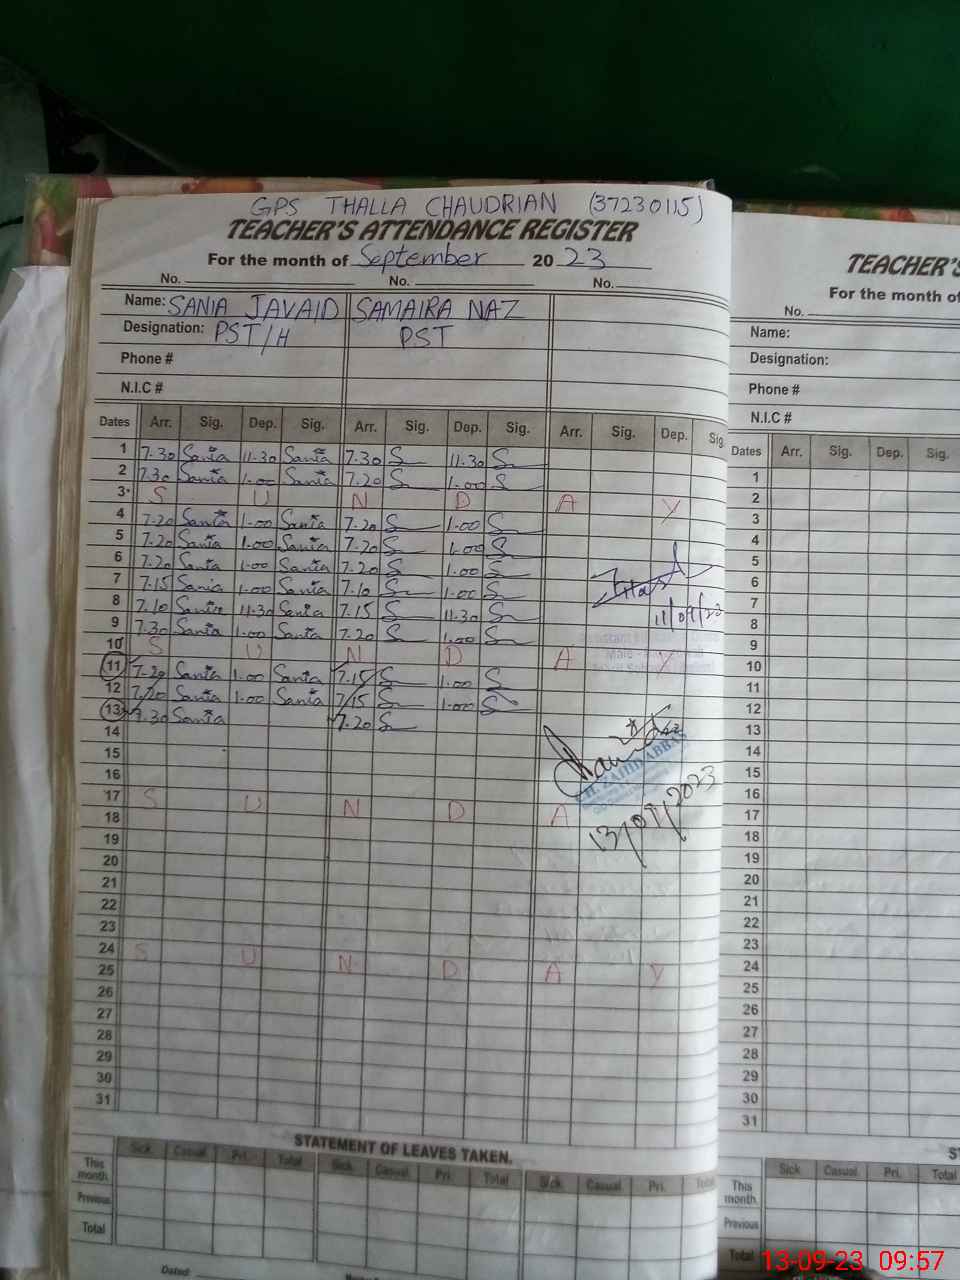 GPS THALLA CHAUDRIAN (37230115)
TEACHER'S ATTENDANCE REGISTER
For the month of September 2023
No. No. No.
Name: SANIA JAVAID SAMAIRA NAZ
Designation: PST/H PST
Phone #
N.I.C #
Dates Arr. Sig. Dep. Sig. Arr. Sig. Dep. Sig. Arr. Sig. Dep. Sig.
1 7.30 Sania 11.30 Sania 7.30 S 11.30 S
2 7.30 Sania 1.00 Sania 7.20 S 1.00 S
3 S U N D A Y
4 7.20 Sania 1.00 Sania 7.20 S 1.00 S
5 7.20 Sania 1.00 Sania 7.20 S 1.00 S
6 7.20 Sania 1.00 Sania 7.20 S 1.00 S
7 7.15 Sania 1.00 Sania 7.10 S 1.00 S
8 7.10 Sania 11.30 Sania 7.15 S 11.30 S
9 7.30 Sania 1.00 Sania 7.20 S 1.00 S
11/09/23
10 S U N D A Y
11 7.20 Sania 1.00 Sania 7.15 S 1.00 S
12 7.20 Sania 1.00 Sania 7.15 S 1.00 S
13 7.30 Sania 7.20 S
14
15
ZAHID ABBAS
16
17 S U N D A
13/09/2023
18
19
20
21
22
23
24 S U N D A Y
25
26
27
28
29
30
31
STATEMENT OF LEAVES TAKEN.
Sick. Casual. Pri. Total Sick. Casual. Pri. Total Sick. Casual. Pri. Total
This month.
Previous
Total
Dated:
TEACHER'S
For the month of
No.
Name:
Designation:
Phone #
N.I.C #
Dates Arr. Sig. Dep. Sig.
1
2
3
4
5
6
7
8
9
10
11
12
13
14
15
16
17
18
19
20
21
22
23
24
25
26
27
28
29
30
31
Sick. Casual. Pri. Total
This month.
Previous
Total
13-09-23 09:57